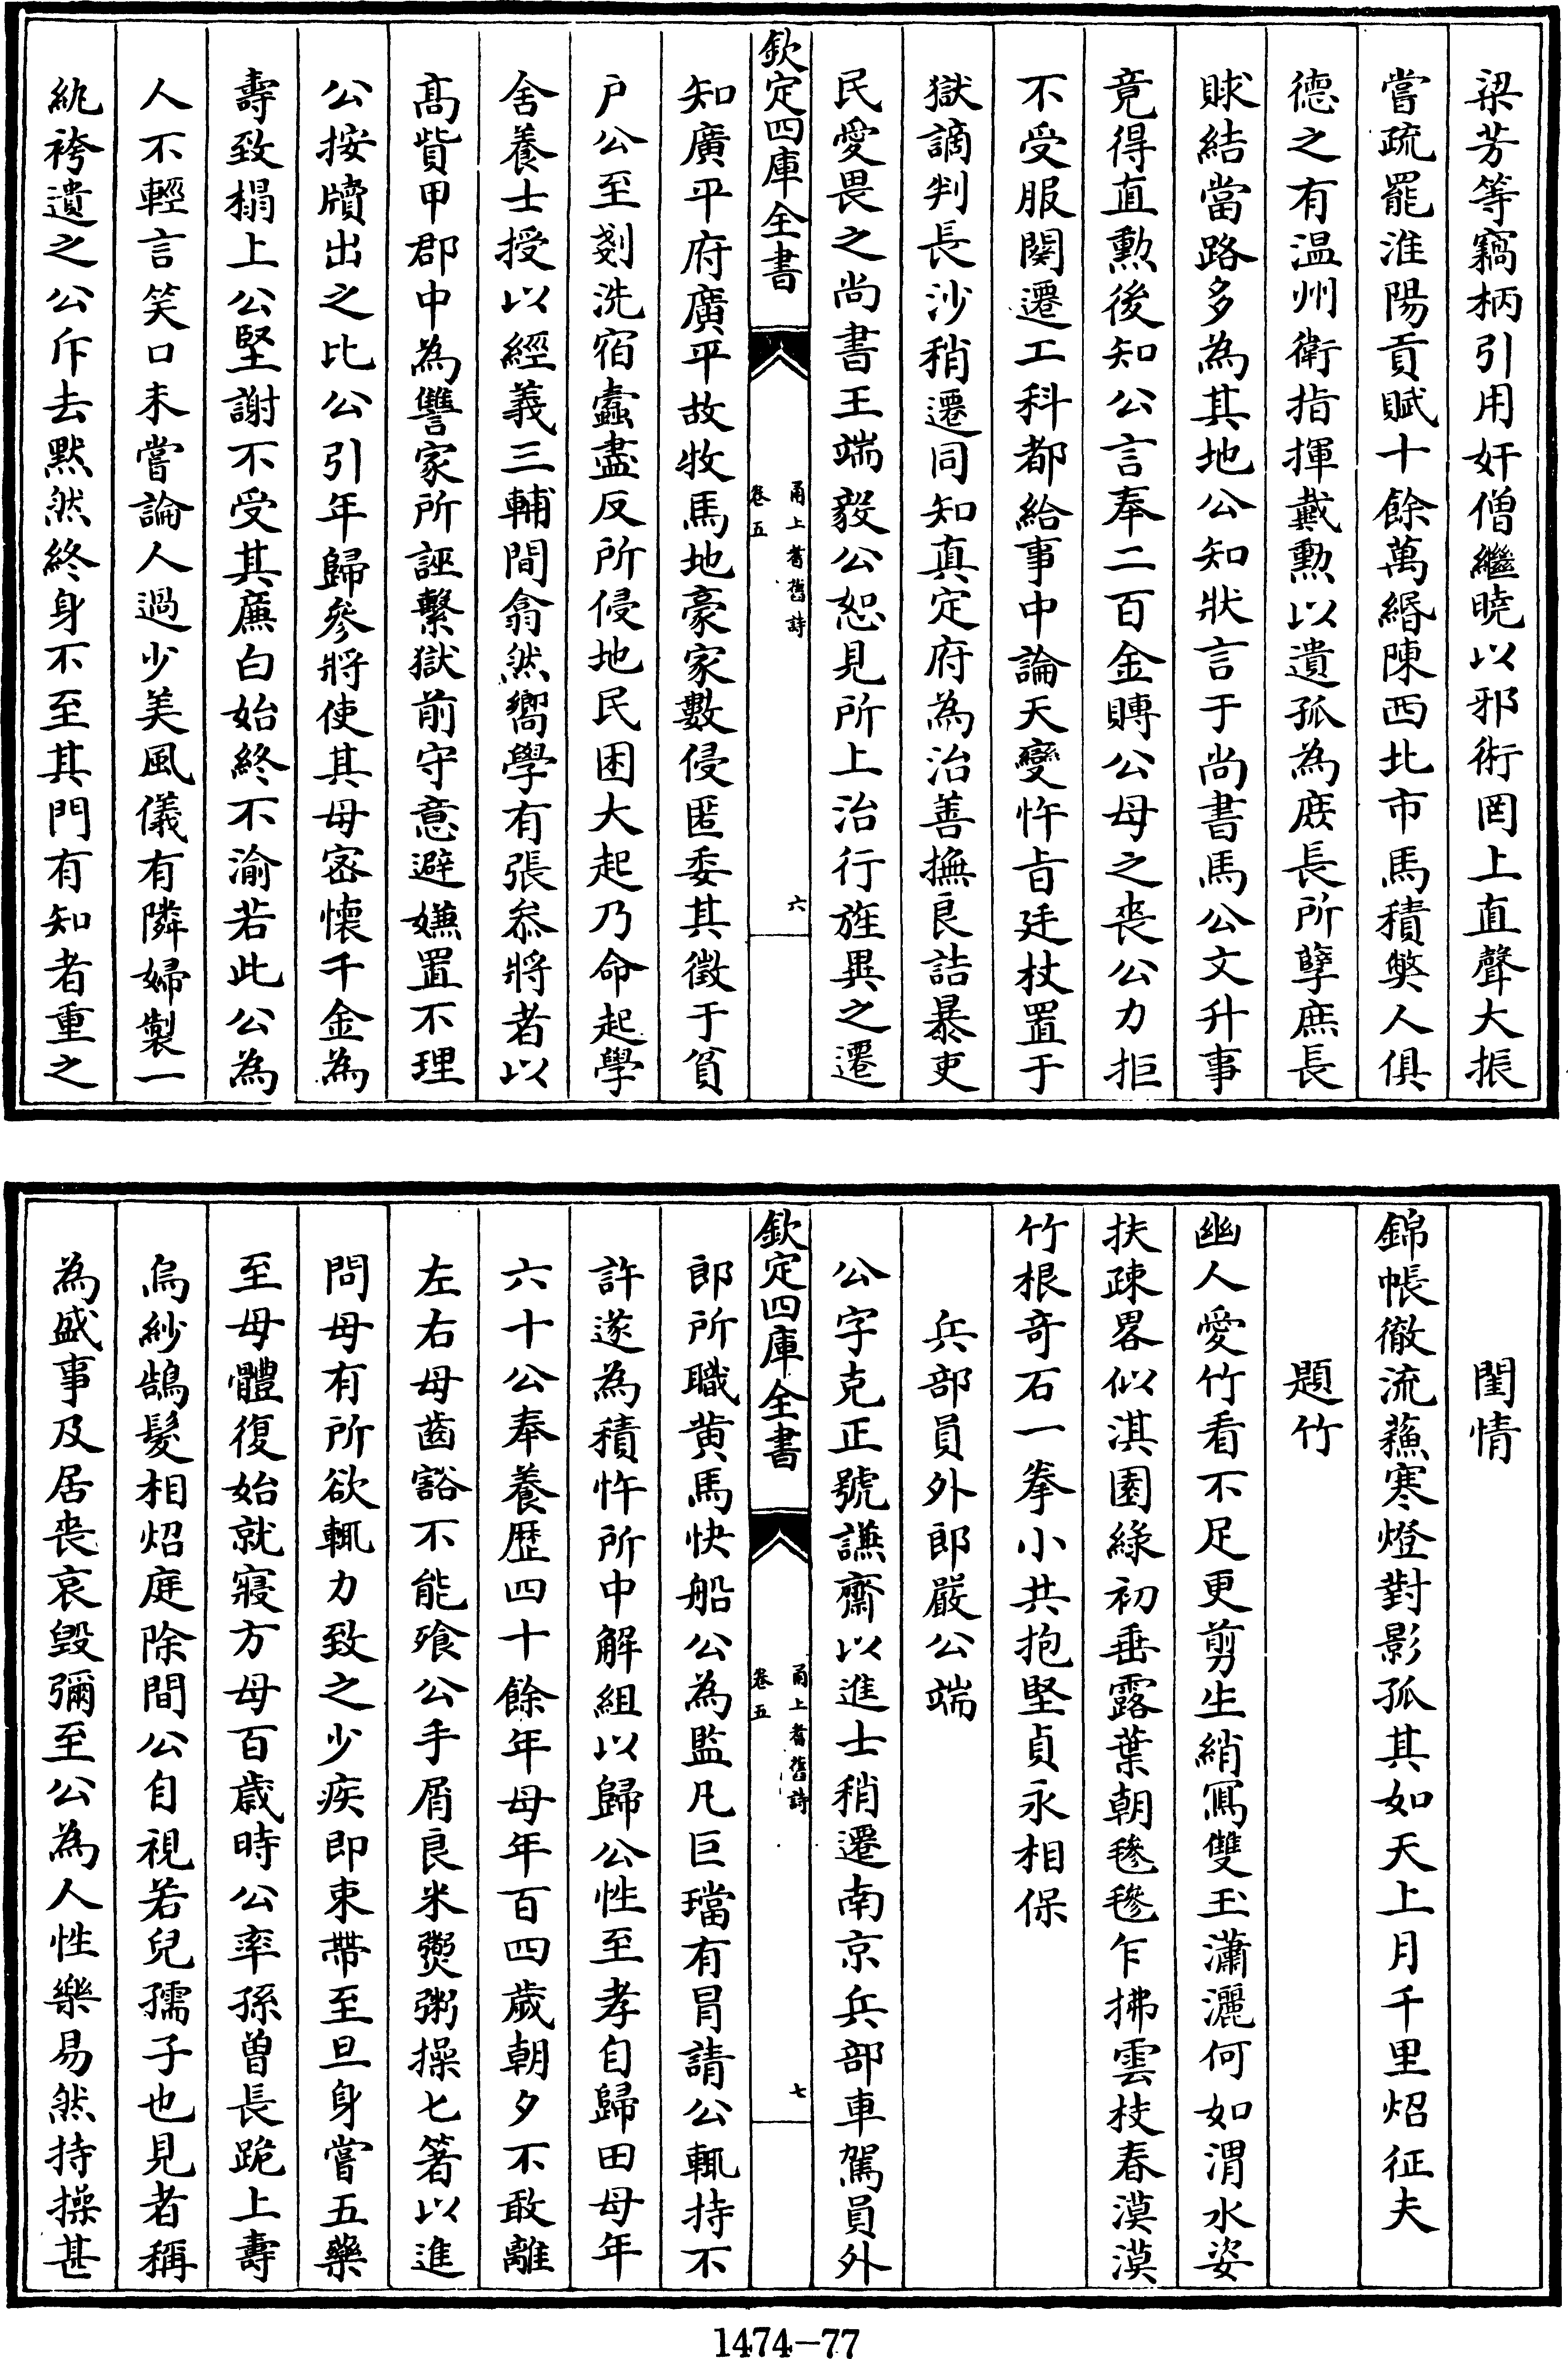 梁芳等竊柄引用奸僧繼曉以邪術罔上直聲大振
嘗疏罷淮陽貢賦十餘萬緡陳西北市馬積弊人俱
德之有温州衛指揮戴勲以遺孤為庶長所孽庶長
賕結當路多為其地公知狀言于尚書馬公文升事
竟得直勲後知公言奉二百金賻公母之喪公力拒
不受服闋遷工科都給事中論天變忤㫖廷杖置于
獄謫判長沙稍遷同知真定府為治善撫良詰暴吏
民愛畏之尚書王端毅公恕見所上治行旌異之遷
欽定四庫全書
甬上耆舊詩
卷五
六
知廣平府廣平故牧馬地豪家數侵匿委其徵于貧
户公至剗洗宿蠹盡反所侵地民困大起乃命起學
舍養士授以經義三輔間翕然嚮學有張叅將者以
髙貲甲郡中為讐家所誣繫獄前守意避嫌置不理
公按牘出之比公引年歸參將使其母宻懷千金為
壽致榻上公堅謝不受其㢘白始終不渝若此公為
人不輕言笑口未嘗論人過少美風儀有隣婦製一
紈袴遺之公斥去黙然終身不至其門有知者重之
閨情
錦帳徹流蘓寒燈對影孤其如天上月千里炤征夫
題竹
幽人愛竹看不足更剪生綃冩雙玉瀟灑何如渭水姿
扶疎畧似淇園緑初垂露葉朝毿毿乍拂雲枝春漠漠
竹根奇石一拳小共抱堅貞永相保
兵部員外郎嚴公端
公字克正號謙齋以進士稍遷南京兵部車駕員外
欽定四庫全書
甬上耆舊詩
卷五
七
郎所職黄馬快船公為監凡巨璫有冐請公輒持不
許遂為積忤所中解組以歸公性至孝自歸田母年
六十公奉養歴四十餘年母年百四歲朝夕不敢離
左右母齒豁不能飱公手屑良米爕粥操匕箸以進
問母有所欲輒力致之少疾即束帶至旦身嘗五藥
至母體復始就寢方母百歲時公率孫曽長跪上壽
烏紗鵠髮相炤庭除間公自視若兒孺子也見者稱
為盛事及居喪哀毁彌至公為人性樂易然持操甚
1474-77